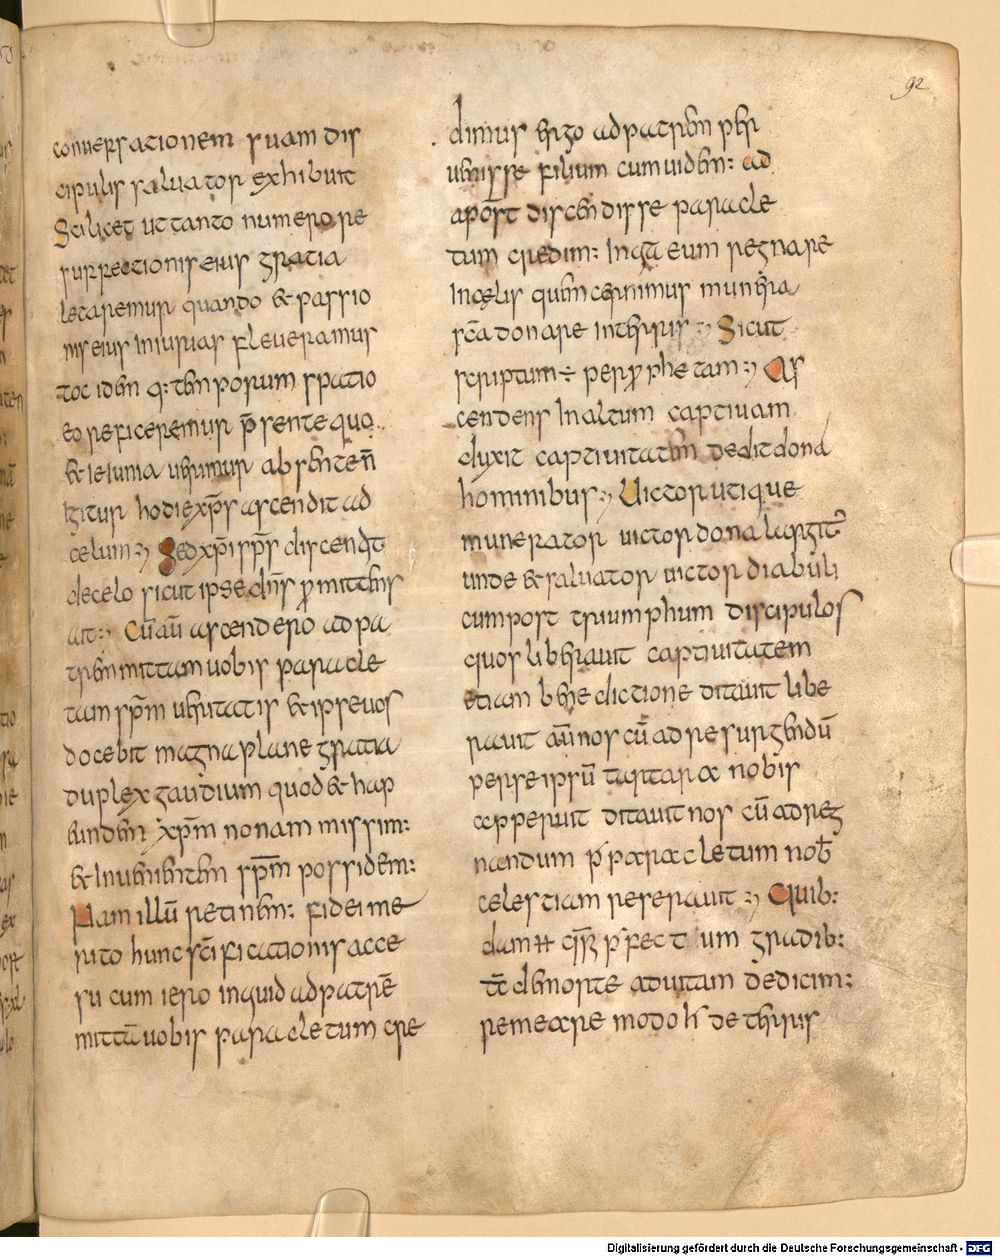 92
conuersationem suam dis
cipulis saluator exhibuit
Scilicet ut tanto numero re
surrectionis eius gratia
letaremur quando & passio
nis eius iniurias fleueramus
toc idem q: temporum spatio
eo reficeremur p̄sente quo
& ieiunia uerimur absenteñ
Igitur hodie xp̄s ascendit ad
celum :, Sed xp̄i sp̄s discendit
de celo sicut ipse dn̄s promittens
ait :, Cū aū ascendero ad pa
trem mittam uobis paracle
tam sp̄m ueritatis & ipse uos
docebit magna plane gratia
duplex gaudium quod & hap
eundem xp̄m non amissim:
& inuenientem sp̄m possidem:
Nam illū retinem: fidei me
rito hunc sc̄ificationis acce
su cum iero inquid ad patrē
mittā uobis paracletum cre
dimus ergo ad patrem per
uenisse filium cum uidem: ad
apost̄ discendisse paracle
tum credim: In qua eum regnare
In celis quem cernimus munera
sc̄a donare in terris :, Sicut
scriptum ÷ per prophetam :, As
cendens In altum captiuam
duxit captiuitatem dedit dona
hominibus :, Uictor utique
munerator uictor dona largit᷒
unde & saluator uictor diabuli
cum post triumphum discipulos
quos liberauit captiuitatem
etiam benedictione ditauit libe
rauit aū nos cū ad resurgendū
per se ipsū tartara nobis
apperuit ditauit nos cū ad reg
nandum per paracletum nob̄
celestiam reserauit :, Quib:
dam perfect um gradib:
de morte ad uitam dedicim:
remeare modo h̄ de terris
Digitalisierung gefördert durch die Deutsche Forschungsgemeinschaft - DFG